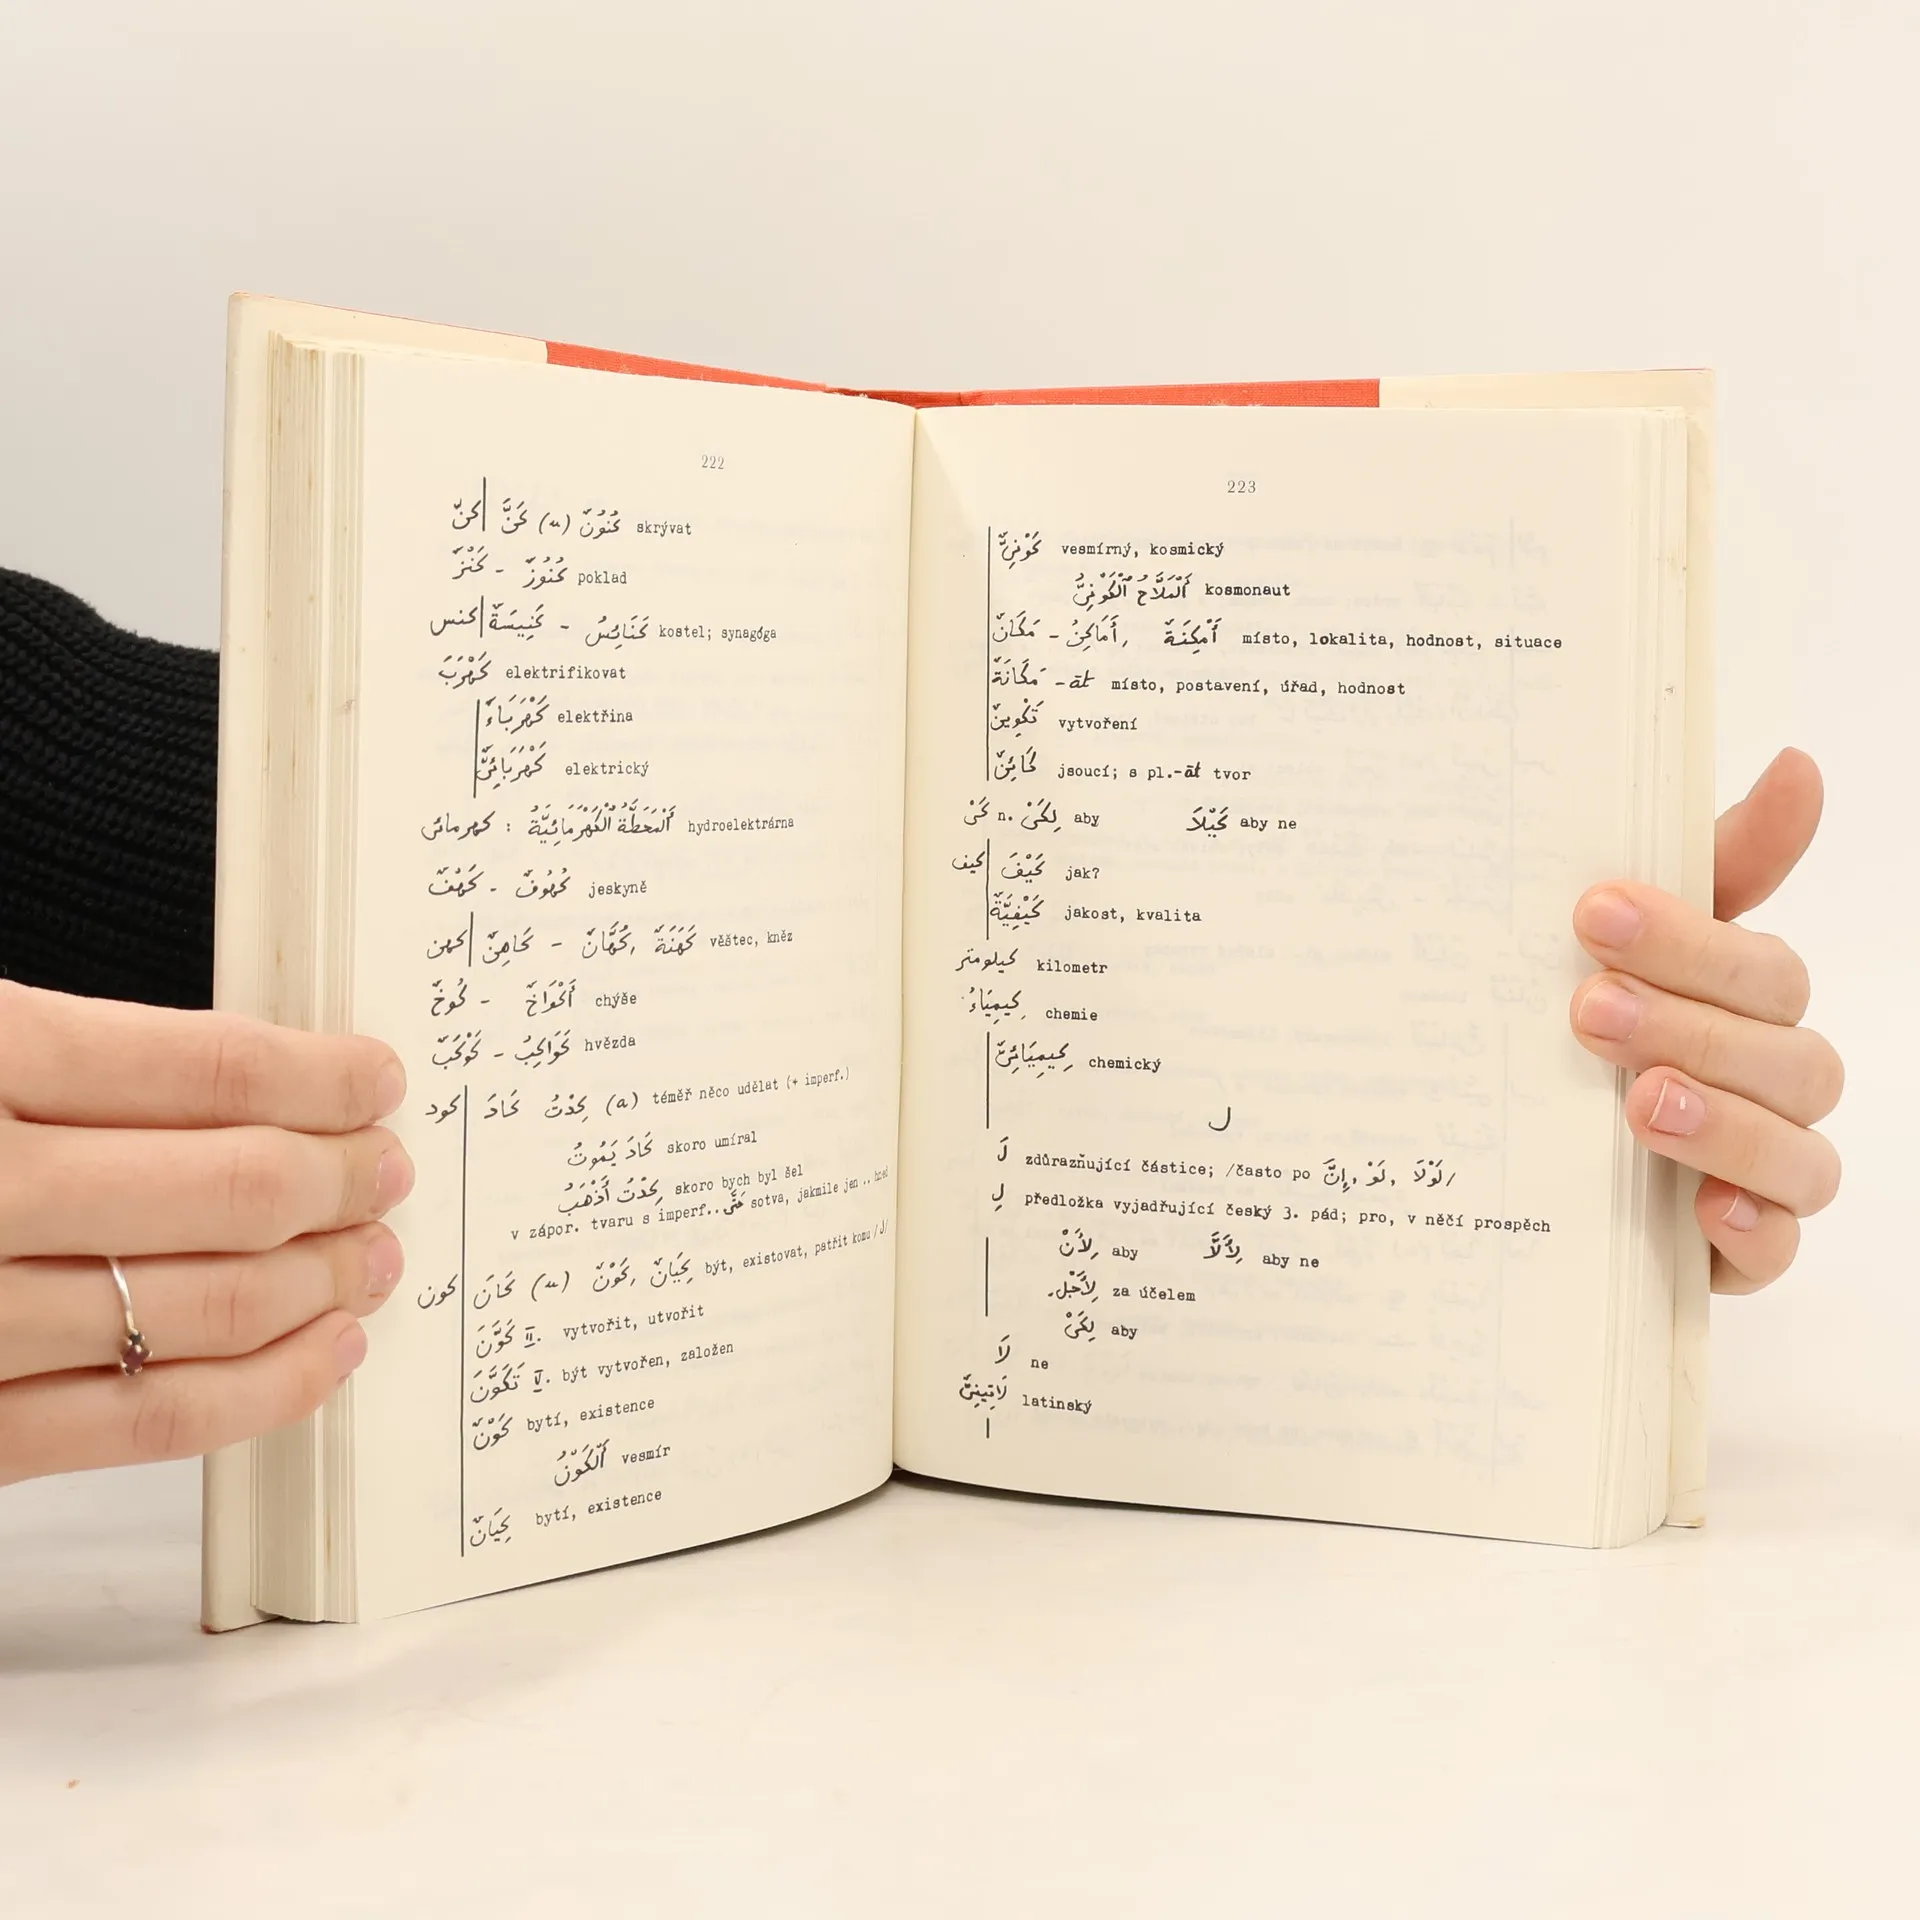 222
كنّ كَنَّ (u) كُنُونٌ skrývat
كَنْزٌ - كُنُوزٌ poklad
كنس كَنِيسَةٌ - كَنَائِسُ kostel; synagóga
كَهْرَبَ elektrifikovat
كَهْرَبَاءٌ elektřina
كَهْرَبَائِيٌّ elektrický
كهرمائى : اَلْمَحَطَّةُ الْكَهْرَمَائِيَّةُ hydroelektrárna
كَهْفٌ - كُهُوفٌ jeskyně
كهن كَاهِنٌ - كُهَّانٌ, كَهَنَةٌ věštec, kněz
كُوخٌ - أَكْوَاخٌ chýše
كَوْكَبٌ - كَوَاكِبُ hvězda
كود كَادَ كِدْتُ (a) téměř něco udělat (+ imperf.)
كَادَ يَمُوتُ skoro umíral
كِدْتُ أَذْهَبُ skoro bych byl šel
v zápor. tvaru s imperf.. حَتَّى sotva, jakmile jen .. hned
كون كَانَ (u) كَوْنٌ, كِيَانٌ být, existovat, patřit komu /لِ/
كَوَّنَ II. vytvořit, utvořit
تَكَوَّنَ V. být vytvořen, založen
كَوْنٌ bytí, existence
اَلْكَوْنُ vesmír
كِيَانٌ bytí, existence
223
كَوْنِيٌّ vesmírný, kosmický
اَلْمَلَّاحُ الْكَوْنِيُّ kosmonaut
مَكَانٌ - أَمَاكِنُ, أَمْكِنَةٌ místo, lokalita, hodnost, situace
مَكَانَةٌ -āt místo, postavení, úřad, hodnost
تَكْوِينٌ vytvoření
كَائِنٌ jsoucí; s pl.-āt tvor
كَىْ n. لِكَىْ aby كَيْلَا aby ne
كيف كَيْفَ jak?
كَيْفِيَّةٌ jakost, kvalita
كيلومتر kilometr
كِيمِيَاءُ chemie
كِيمِيَائِىٌّ chemický
ل
لَ zdůrazňující částice; /často po إِنَّ, لَوْ, لَوْلَا/
لِ předložka vyjadřující český 3. pád; pro, v něčí prospěch
لِأَنْ aby لِأَلَّا aby ne
لِأَجْلِ za účelem
لِكَىْ aby
لَا ne
لَاتِينِىٌّ latinský